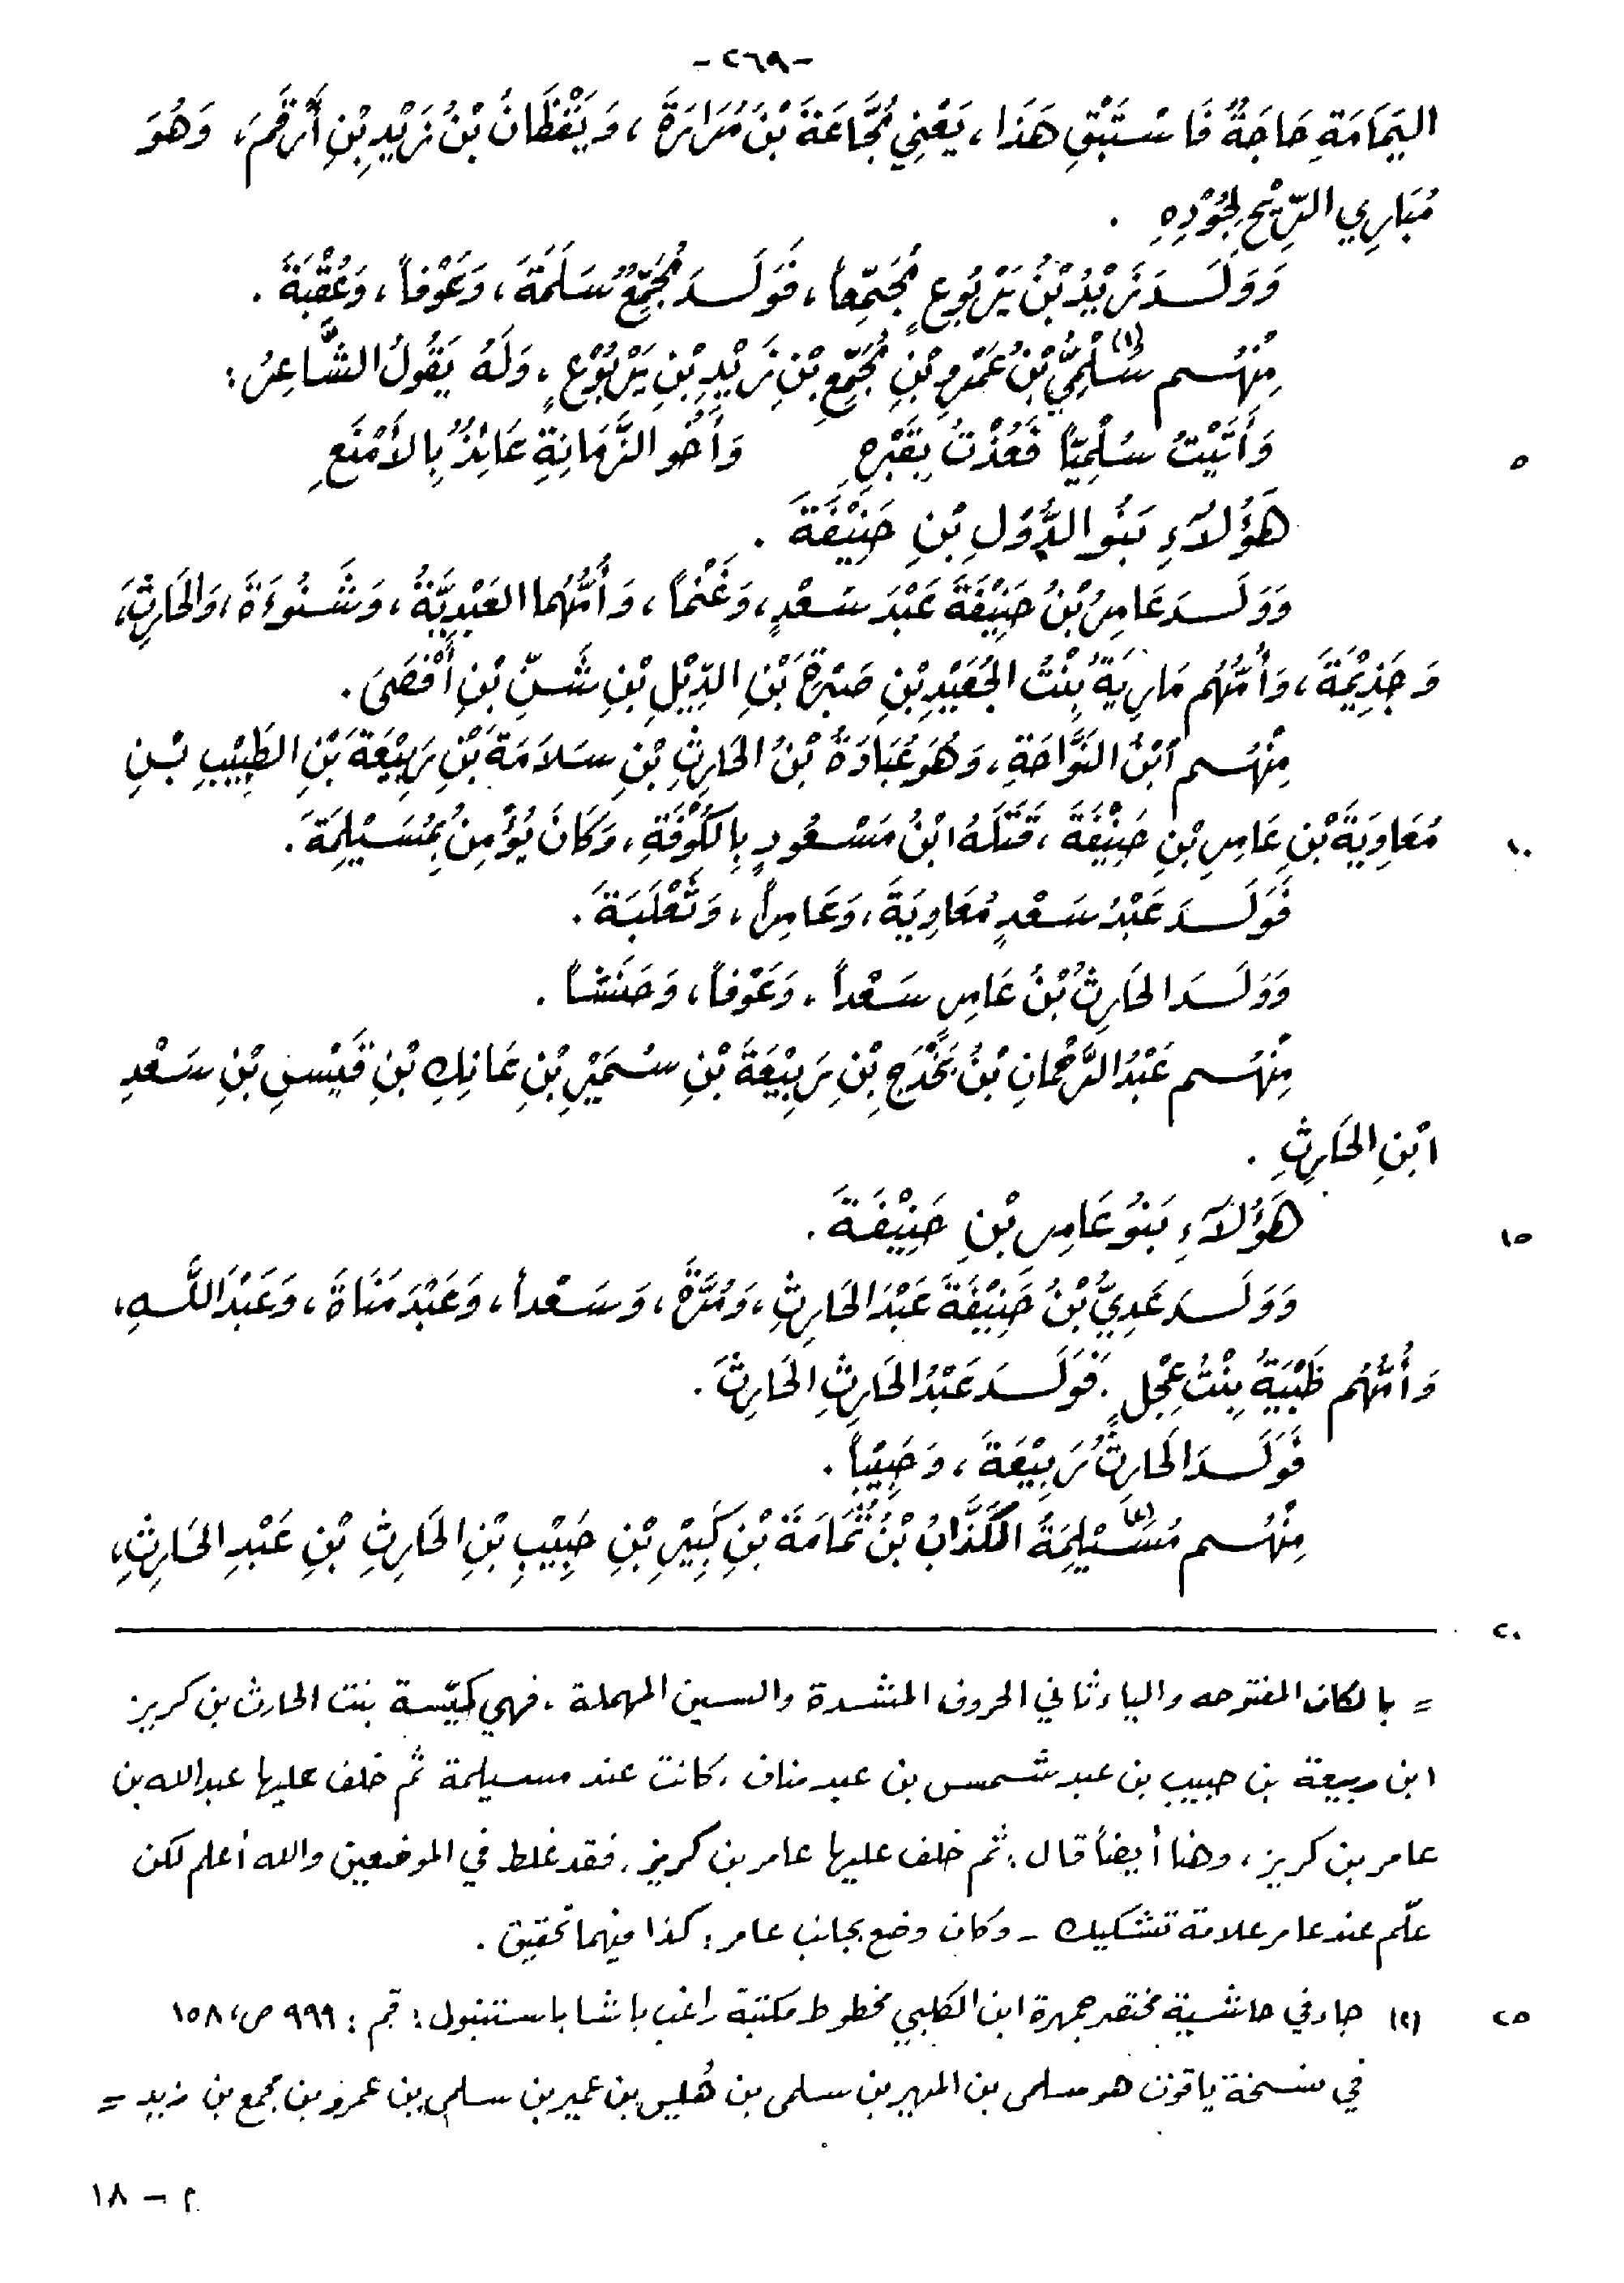 -٢٦٩-
اليَمَامَةِ حَاجَةٌ فَاسْتَبْقِ هَذَا، يَعْنِي مُجَّاعَةَ بْنَ مُرَارَةَ، وَيَقْظَانُ بْنُ زَيْدِ بْنِ أَرْقَمَ، وَهُوَ
مُبَارِي الرِّيْحِ لِجُوْدِهِ .
وَوَلَدَ زَيْدُ بْنُ يَرْبُوعٍ مُجَمِّعاً، فَوَلَدَ مُجَمِّعٌ سَلَمَةَ، وَعَوْفاً، وَعُقْبَةَ .
مِنْهُم سُلْمِيُّ(١) بْنُ عَمْرِو بْنِ مُجَمِّعِ بْنِ زَيْدِ بْنِ يَرْبُوْعٍ، وَلَهُ يَقُولُ الشَّاعِرُ:
٥ وَأَتَيْتُ سُلْمِيّاً فَعُذْتُ بِقَبْرِهِ وَأَخُو الزَّمَانَةِ عَائِذٌ بِالأَمْنَعِ
هَؤُلاَءِ بَنُو الدُّوْلِ بْنِ حَنِيْفَةَ .
وَوَلَدَ عَامِرُ بْنُ حَنِيْفَةَ عَبْدَ سَعْدٍ، وَغَنْماً، وَأُمُّهُما العَبْدِيَّةُ، وَشَنُوءَةَ، وَالحَارِثَ،
وَجَذِيْمَةَ، وَأُمُّهُم مَارِيَةُ بِنْتُ الجُعَيْدِ بْنِ صَبْرَةَ بْنِ الدِّيْلِ بْنِ شَنِّ بْنِ أَفْصَى .
مِنْهُم ابْنُ النَّوَّاحَةِ، وَهُوَ عُبَادَةُ بْنُ الحَارِثِ بْنِ سَلاَمَةَ بْنِ رَبِيْعَةَ بْنِ الطَبِيْبِ بْنِ
١٠ مُعَاوِيَةَ بْنِ عَامِرِ بْنِ حَنِيْفَةَ، قَتَلَهُ ابْنُ مَسْعُودٍ بِالكُوْفَةِ، وَكَانَ يُؤْمِنُ بِمُسَيْلِمَةَ .
فَوَلَدَ عَبْدُ سَعْدٍ مُعَاوِيَةَ، وَعَامِراً، وَثَعْلَبَةَ .
وَوَلَدَ الحَارِثُ بْنُ عَامِرٍ سَعْداً، وَعَوْفاً، وَحَنَشاً .
مِنْهُم عَبْدُ الرَّحْمانِ بْنُ بَحْدَجِ بْنِ رَبِيْعَةَ بْنِ سُمَيْرِ بْنِ عَاتِكِ بْنِ قَيْسِ بْنِ سَعْدِ
ابْنِ الحَارِثِ .
١٥ هَؤُلاَءِ بَنُو عَامِرِ بْنِ حَنِيْفَةَ .
وَوَلَدَ عَدِيُّ بْنُ حَنِيْفَةَ عَبْدَ الحَارِثِ، وَمُرَّةَ، وَسَعْداً، وَعَبْدَ مَنَاةَ، وَعَبْدَ اللَّهِ،
وَأُمُّهُم ظَبْيَةُ بِنْتُ عِجْلٍ . فَوَلَدَ عَبْدُ الحَارِثِ الحَارِثَ .
فَوَلَدَ الحَارِثُ رَبِيْعَةَ، وَحَبِيْباً .
مِنْهُم مُسَيْلِمَةُ(١) الكَذَّابُ بْنُ ثُمَامَةَ بْنِ كَبِيْرِ بْنِ حَبِيْبِ بْنِ الحَارِثِ بْنِ عَبْدِ الحَارِثِ،
٢٠
= بالكاف المفتوحه والياء ثاني الحروف المشددة والسين المهملة، فهي كيّسة بنت الحارث بن كريز
ابن ربيعة بن حبيب بن عبد شمس بن عبد مناف، كانت عند مسيلمة ثم خلف عليها عبدالله بن
عامر بن كريز، وهنا أيضاً قال: ثم خلف عليها عامر بن كريز، فقد غلط في الموضعين والله أعلم لكن
علّم عند عامر علامة تشكيك - وكان وضع بجانب عامر: كذا فيهما تحقيق .
٢٥ (١) جاء في حاشية مختصر جمهرة ابن الكلبي مخطوط مكتبة راغب باشا باستنبول: رقم: ٩٩٩ ص، ١٥٨
في نسخة ياقوت هو سلمى بن المهير بن سلمى بن هُليس بن عمير بن سلمى بن عمرو بن مجمع بن زيد =
م - ١٨